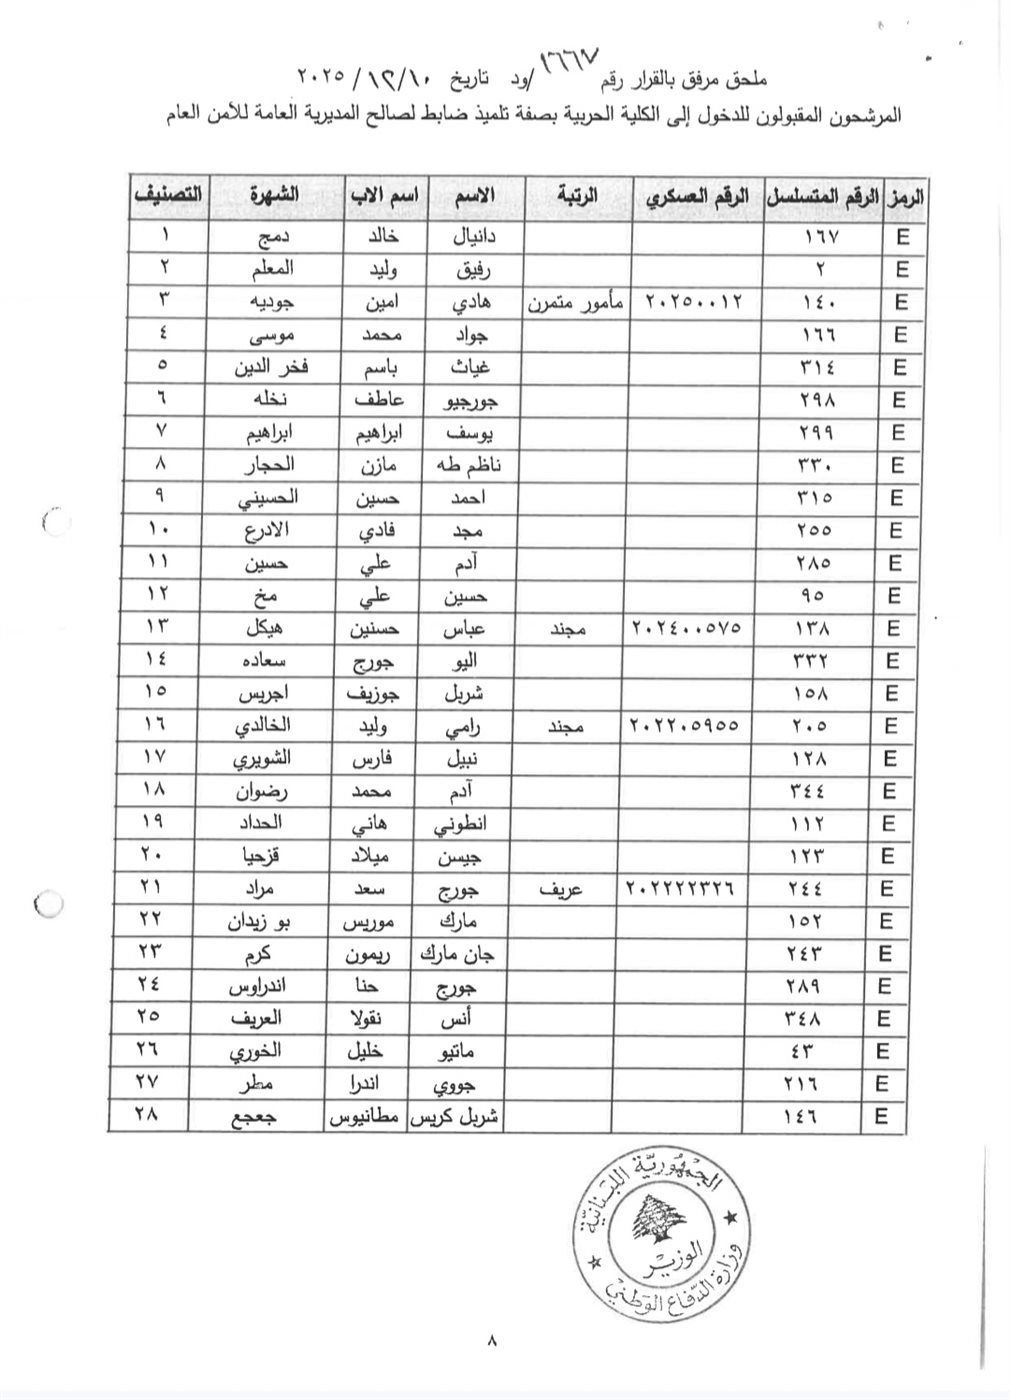 ملحق مرفق بالقرار رقم ١٦٦٧/ود تاريخ ٢٠٢٥/١٢/١٠
المرشحون المقبولون للدخول إلى الكلية الحربية بصفة تلميذ ضابط لصالح المديرية العامة للأمن العام
الرمز الرقم المتسلسل الرقم العسكري الرتبة الاسم اسم الاب الشهرة التصنيف
E ١٦٧ دانيال خالد دمج ١
E ٢ رفيق وليد المعلم ٢
E ١٤٠ ٢٠٢٥٠٠١٢ مأمور متمرن هادي امين جوديه ٣
E ١٦٦ جواد محمد موسى ٤
E ٣١٤ غياث باسم فخر الدين ٥
E ٢٩٨ جورجيو عاطف نخله ٦
E ٢٩٩ يوسف ابراهيم ابراهيم ٧
E ٣٣٠ ناظم طه مازن الحجار ٨
E ٣١٥ احمد حسين الحسيني ٩
E ٢٥٥ مجد فادي الادرع ١٠
E ٢٨٥ آدم علي حسين ١١
E ٩٥ حسين علي مخ ١٢
E ١٣٨ ٢٠٢٤٠٠٥٧٥ مجند عباس حسنين هيكل ١٣
E ٣٣٢ اليو جورج سعاده ١٤
E ١٥٨ شربل جوزيف اجريس ١٥
E ٢٠٥ ٢٠٢٢٠٥٩٥٥ مجند رامي وليد الخالدي ١٦
E ١٢٨ نبيل فارس الشويري ١٧
E ٣٤٤ آدم محمد رضوان ١٨
E ١١٢ انطوني هاني الحداد ١٩
E ١٢٣ جيسن ميلاد قزحيا ٢٠
E ٢٤٤ ٢٠٢٢٢٢٣٢٦ عريف جورج سعد مراد ٢١
E ١٥٢ مارك موريس بو زيدان ٢٢
E ٢٤٣ جان مارك ريمون كرم ٢٣
E ٢٨٩ جورج حنا اندراوس ٢٤
E ٣٤٨ أنس نقولا العريف ٢٥
E ٤٣ ماتيو خليل الخوري ٢٦
E ٢١٦ جووي اندرا مطر ٢٧
E ١٤٦ شربل كريس مطانيوس جعجع ٢٨
الجمهوريّة اللبنانيّة
الوزير
وزارة الدّفاع الوطني
٨